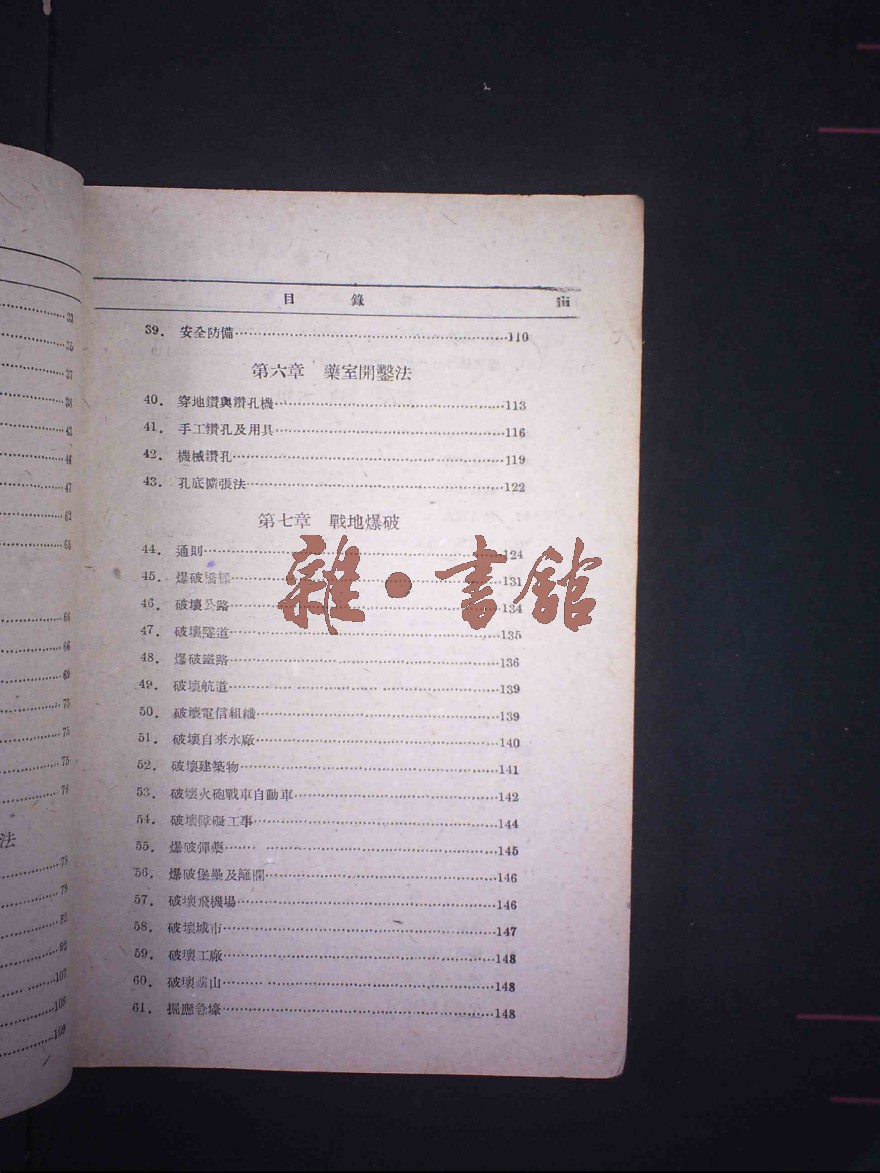 33
35
37
38
43
44
47
62
65
66
66
69
73
75
75
76
法
78
78
81
92
107
108
109
目錄 iii
39. 安全防備 110
第六章 藥室開鑿法
40. 穿地鑽與鑽孔機 113
41. 手工鑽孔及用具 116
42. 機械鑽孔 119
43. 孔底擴張法 122
第七章 戰地爆破
44. 通則 124
45. 爆破橋樑 131
46. 破壞公路 134
47. 破壞隧道 135
48. 爆破鐵路 136
49. 破壞航道 139
50. 破壞電信組織 139
51. 破壞自來水廠 140
52. 破壞建築物 141
53. 破壞火砲戰車自動車 142
54. 破壞障礙工事 144
55. 爆破彈藥 145
56. 爆破堡壘及籬欄 146
57. 破壞飛機場 146
58. 破壞城市 147
59. 破壞工廠 148
60. 破壞礦山 148
61. 掘應急壕 148
雜·書館